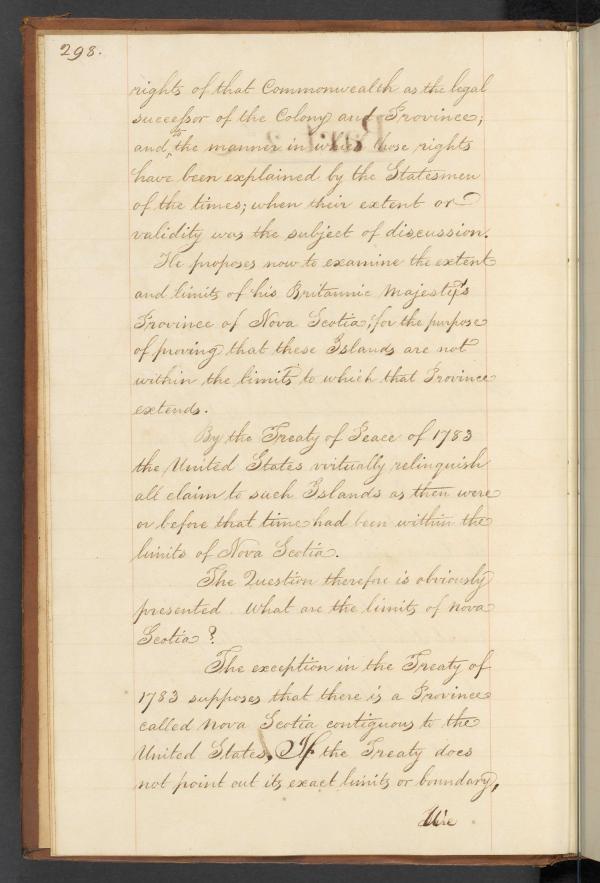 298.
rights of that Commonwealth as the legal
successor of the Colony and Province;
to
and the manner in which those rights
have been explained by the Statesmen
of the times; when their extent or
validity was the subject of discussion.
He proposes now to examine the extent
and limits of his Britannic Majesty's
Province of Nova Scotia; for the purpose
of proving that these Islands are not
within the limits to which that Province
extends.
By the Treaty of Peace of 1783
the United States virtually relinquish
all claim to such Islands as then were
or before that time had been within the
limits of Nova Scotia.
The Question therefore is obviously
presented What are the limits of Nova
Scotia?
The exception in the Treaty of
1783 supposes that there is a Province
called Nova Scotia contiguous to the
United States. If the Treaty does
not point out its exact limits or boundary,